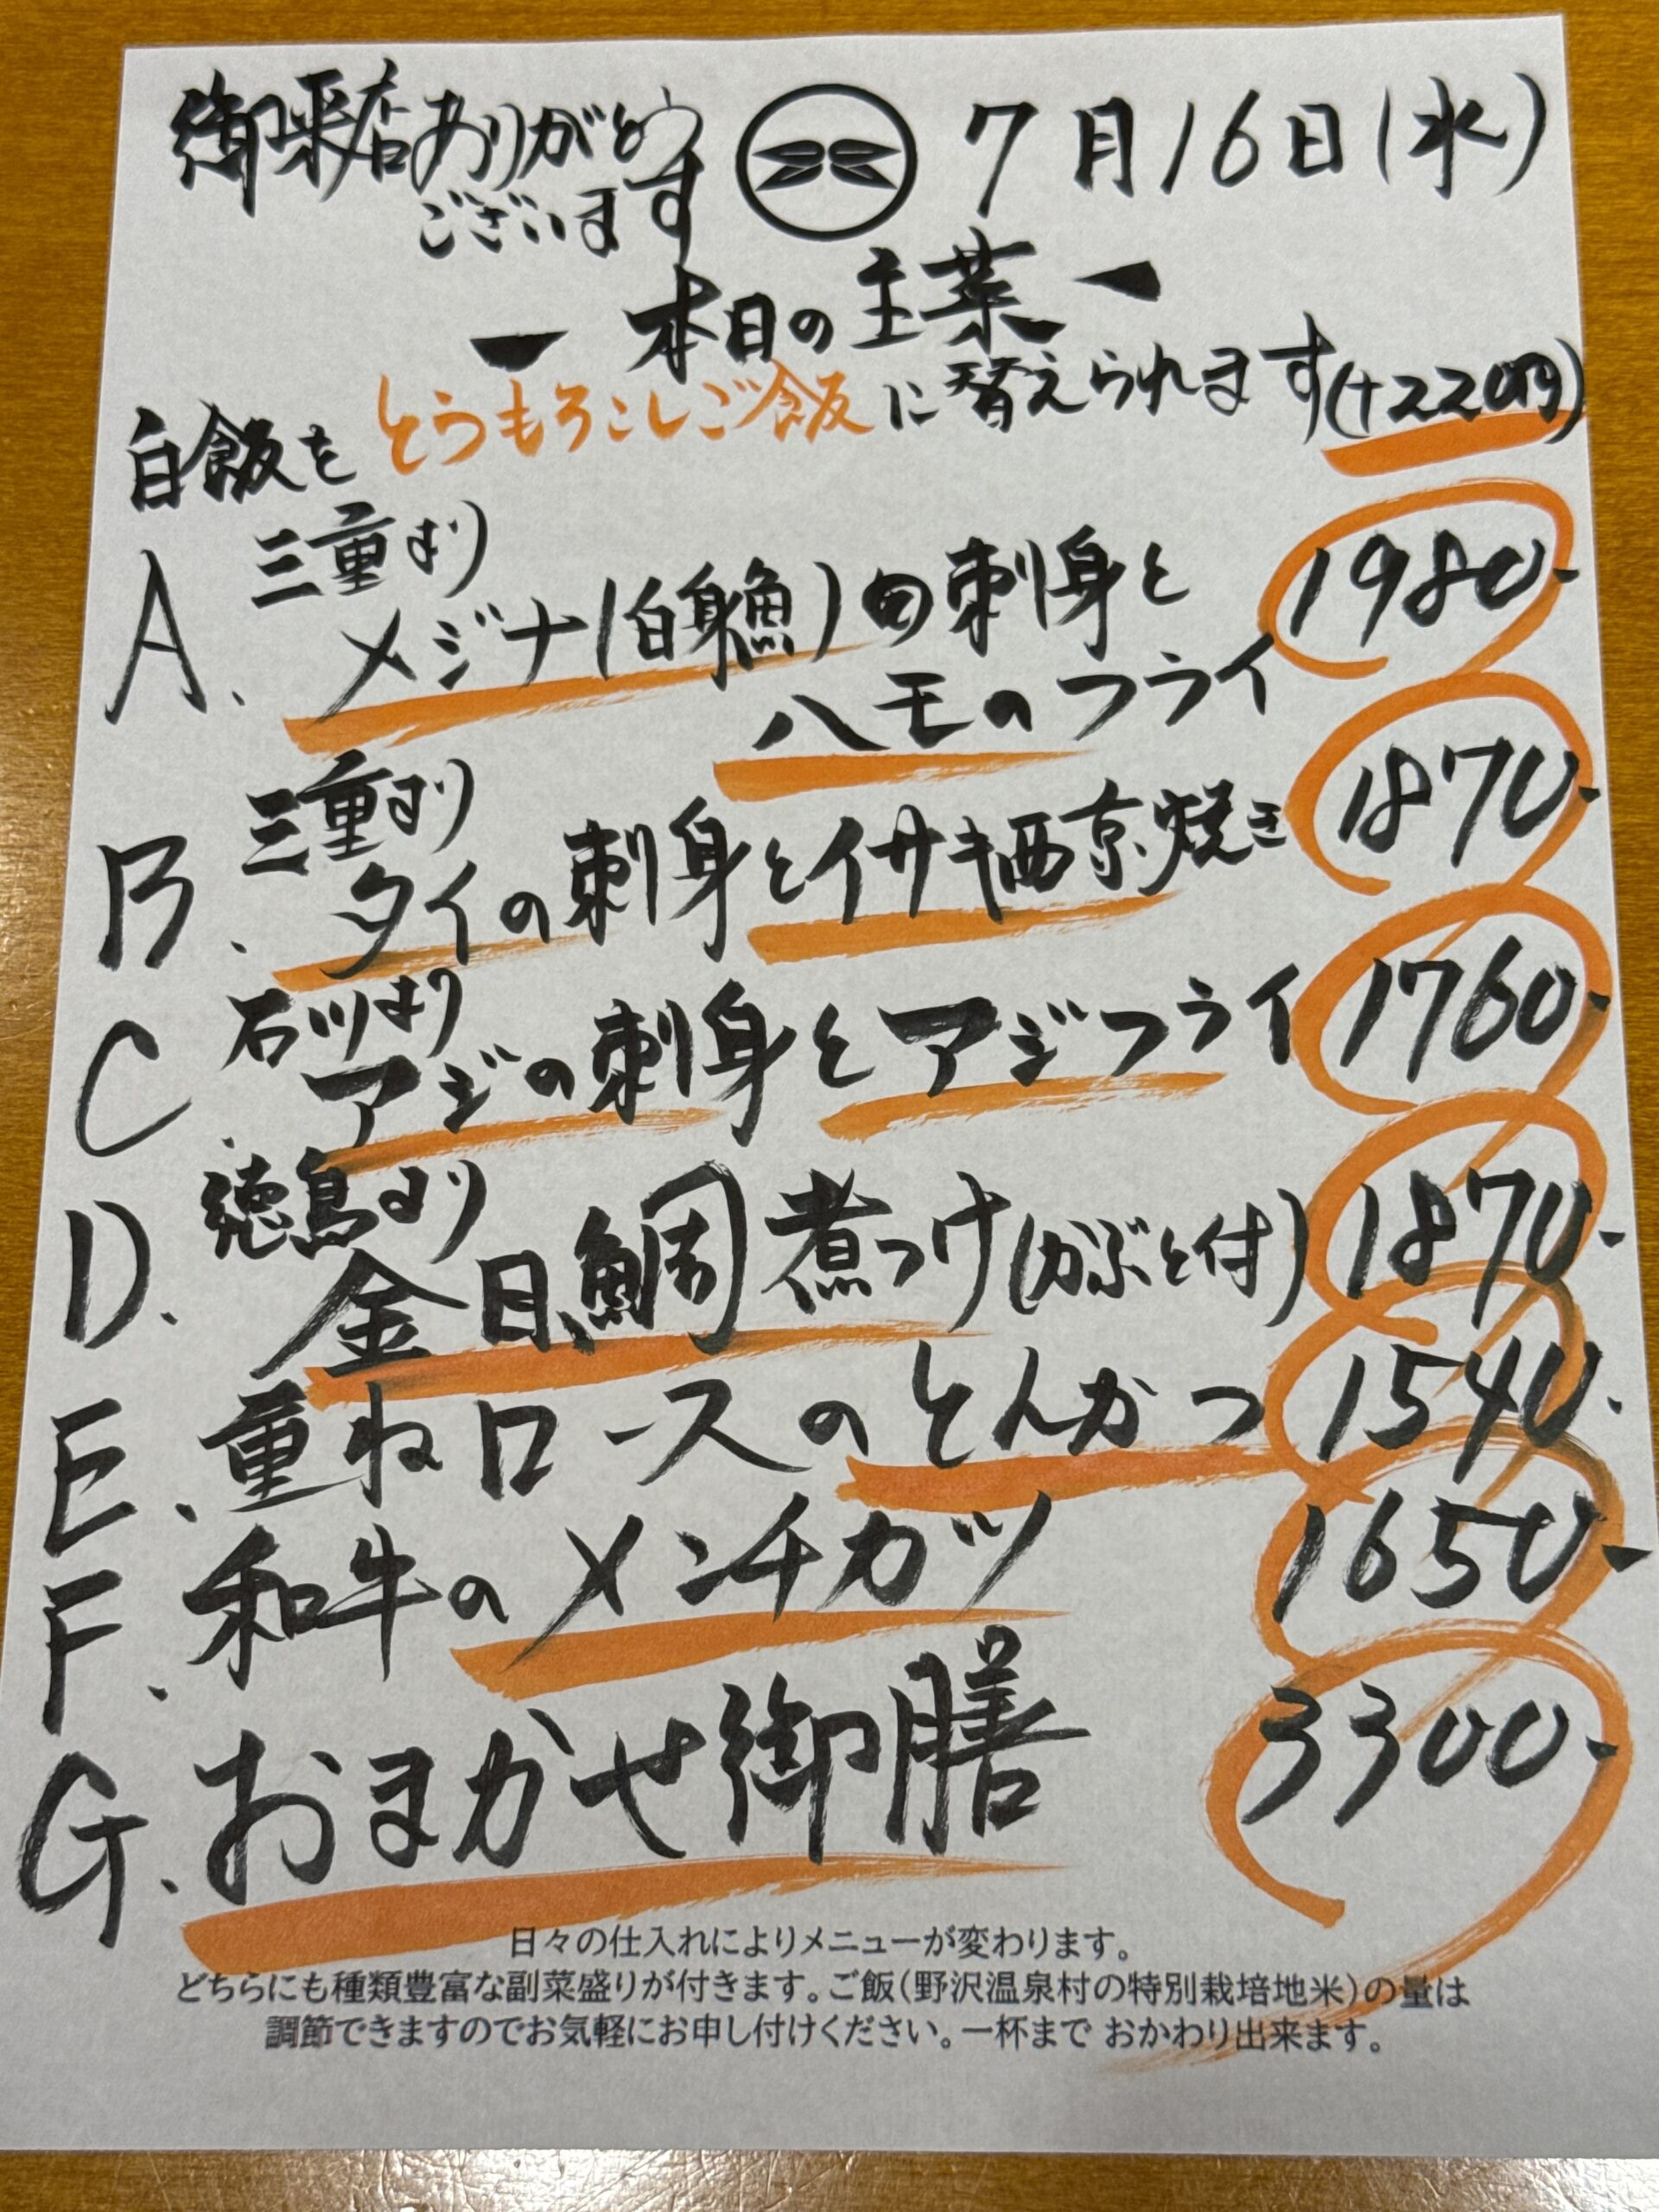 御来店ありがとう
ございます
7月16日(水)
ー 本日の主菜 ー
白飯をとうもろこしご飯に替えられます(+220円)
A. 三重より
メジナ(白身魚)の刺身と
ハモのフライ
1980-
B. 三重より
タイの刺身とイサキ西京焼き 1870-
C. 石川より
アジの刺身とアジフライ 1760-
D. 徳島より
金目鯛煮つけ(かぶと付) 1870-
E. 重ねロースのとんかつ 1540-
F. 和牛のメンチカツ 1650-
G. おまかせ御膳 3300-
日々の仕入れによりメニューが変わります。
どちらにも種類豊富な副菜盛りが付きます。ご飯(野沢温泉村の特別栽培地米)の量は
調節できますのでお気軽にお申し付けください。一杯まで おかわり出来ます。